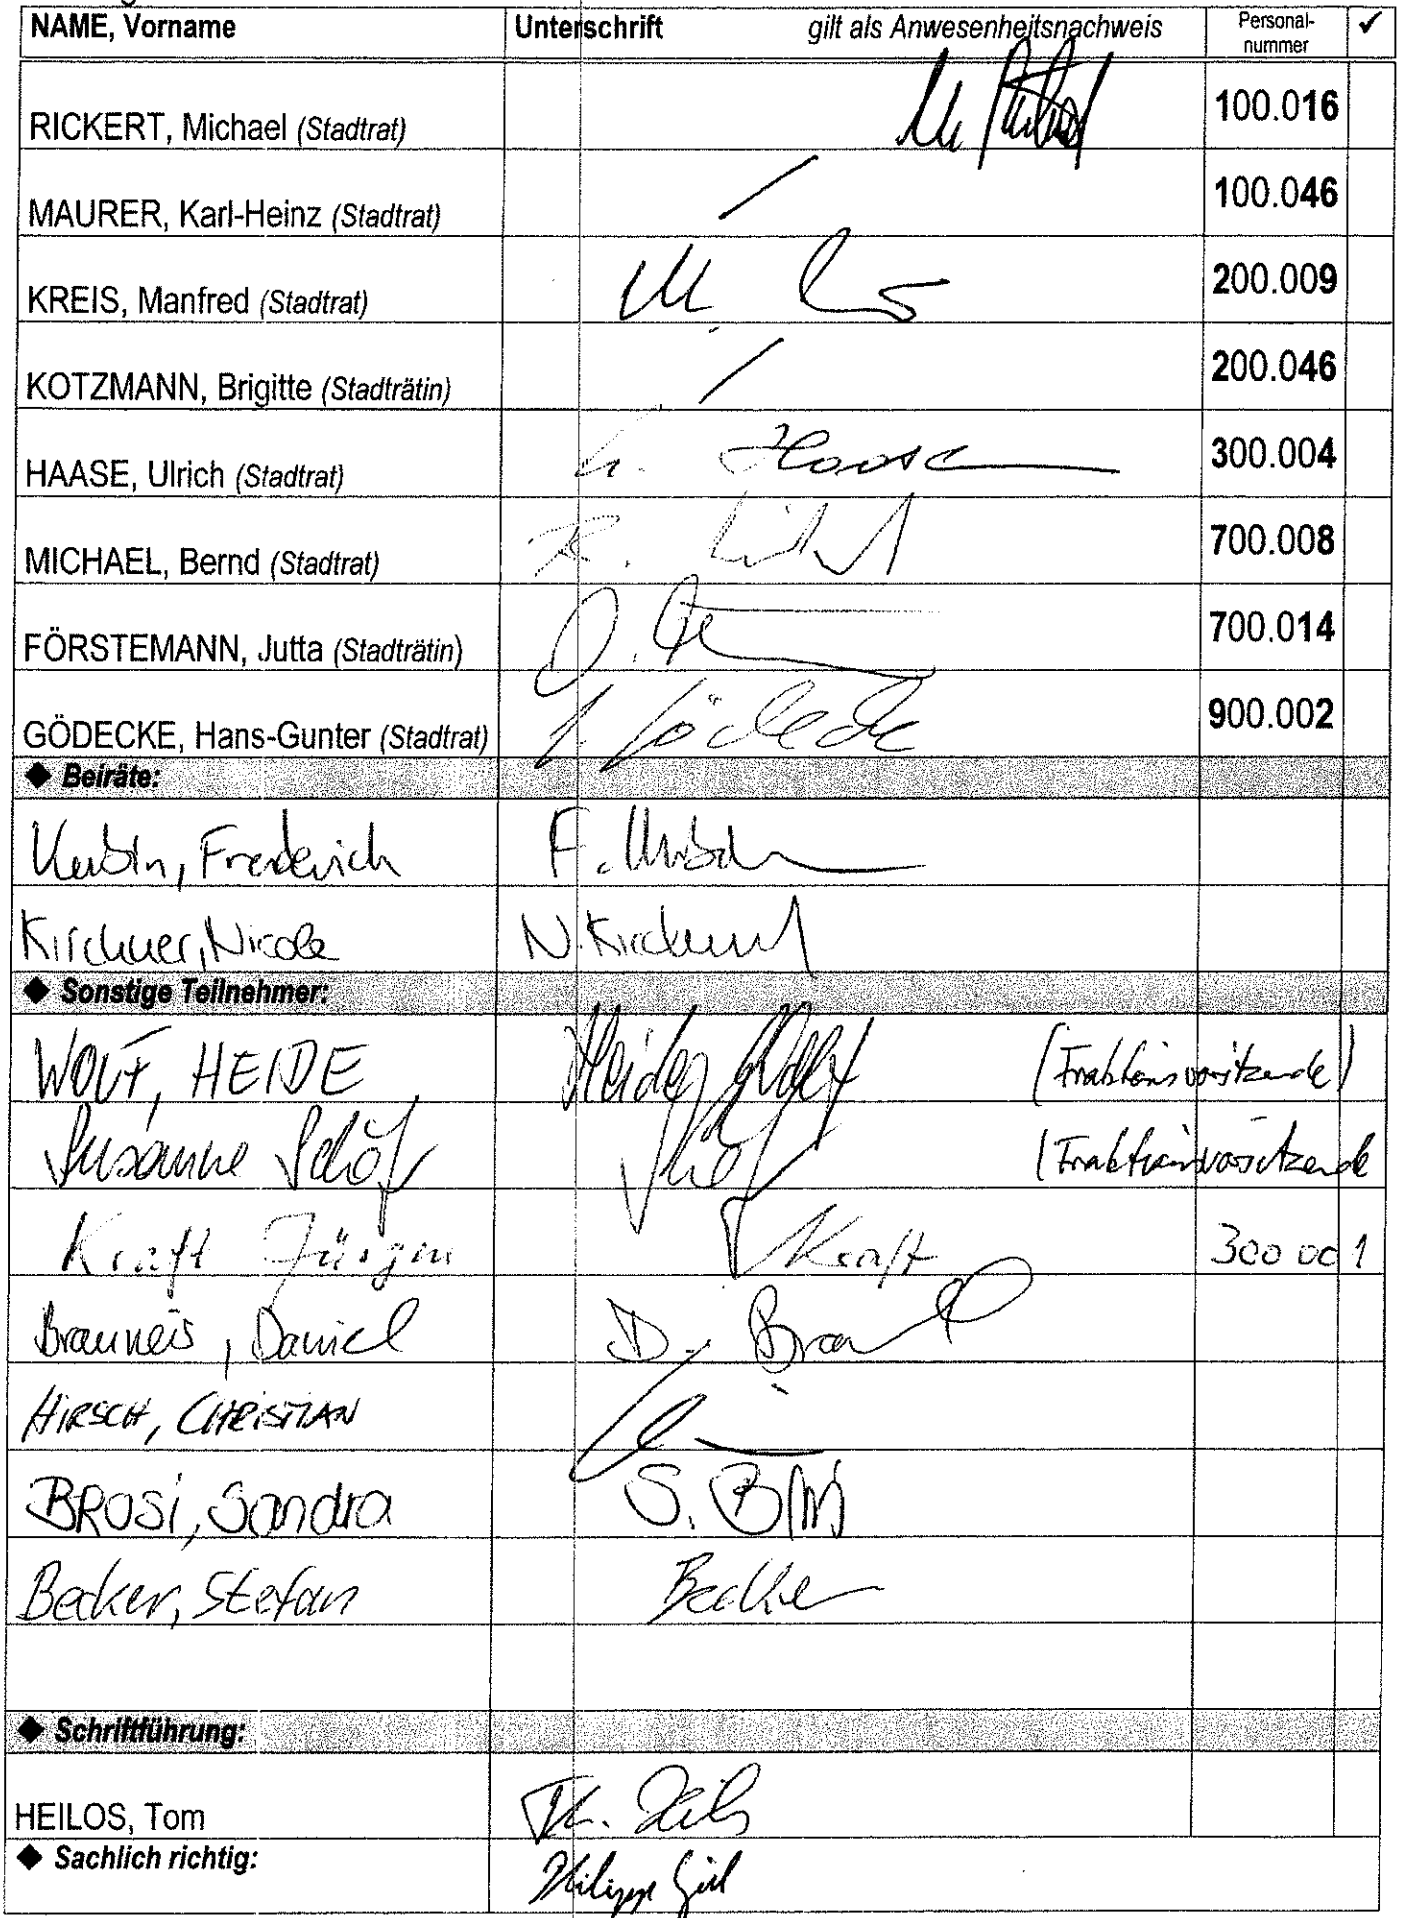 NAME, Vorname Unterschrift gilt als Anwesenheitsnachweis Personal-nummer ✓
RICKERT, Michael (Stadtrat) 100.016
MAURER, Karl-Heinz (Stadtrat) / 100.046
KREIS, Manfred (Stadtrat) 200.009
KOTZMANN, Brigitte (Stadträtin) / 200.046
HAASE, Ulrich (Stadtrat) U. Haase 300.004
MICHAEL, Bernd (Stadtrat) 700.008
FÖRSTEMANN, Jutta (Stadträtin) 700.014
GÖDECKE, Hans-Gunter (Stadtrat) Gödecke 900.002
◆ Beiräte:
Frederich F.
Kirchner, Nicole N. Kirchner
◆ Sonstige Teilnehmer:
WOLF, HEIDE Heide Wolf (Fraktionsvorsitzende)
Susanne (Fraktionsvorsitzende
Kraft Jürgen Kraft 300 001
Brauneis, Daniel D. Brau
HIRSCH, CHRISTIAN
BROSI, Sandra S. Brosi
Becker, Stefan Becker
◆ Schriftführung:
HEILOS, Tom
◆ Sachlich richtig:
Philipp